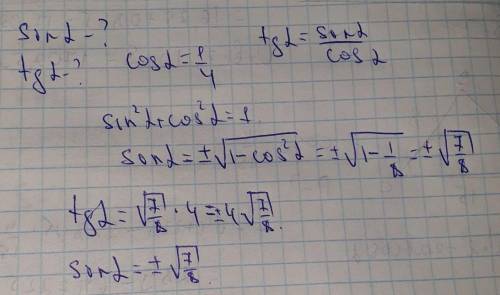 sinα-?
tgα-?
cosα=1/4
tgα=sinα/cosα
sin²α+cos²α=1
sinα=±√(1-cos²α)=±√(1-1/8)=±√(7/8)
tgα=√(7/8)·4=±4√(7/8).
sinα=±√(7/8).